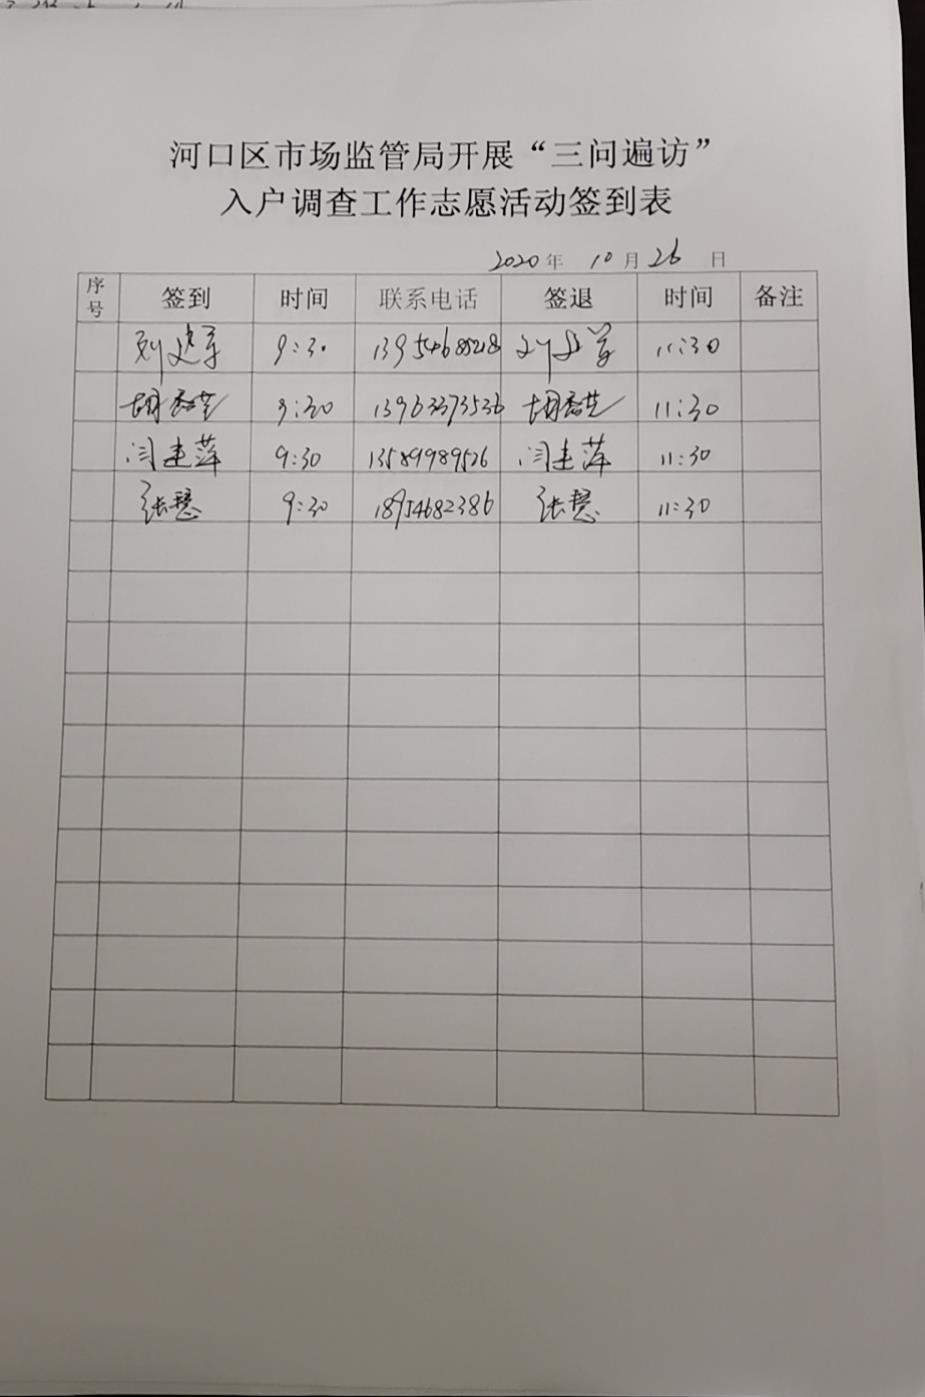 河口区市场监管局开展“三问遍访”
入户调查工作志愿活动签到表
2020年 10月26日
序号 签到 时间 联系电话 签退 时间 备注
9:30 13954685218 11:30
9:30 13963373536 11:30
闫建萍 9:30 13589989526 闫建萍 11:30
张慧 9:30 18954682386 张慧 11:30